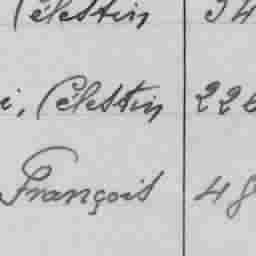 Célestin 34
i, Célestin 226
François 48